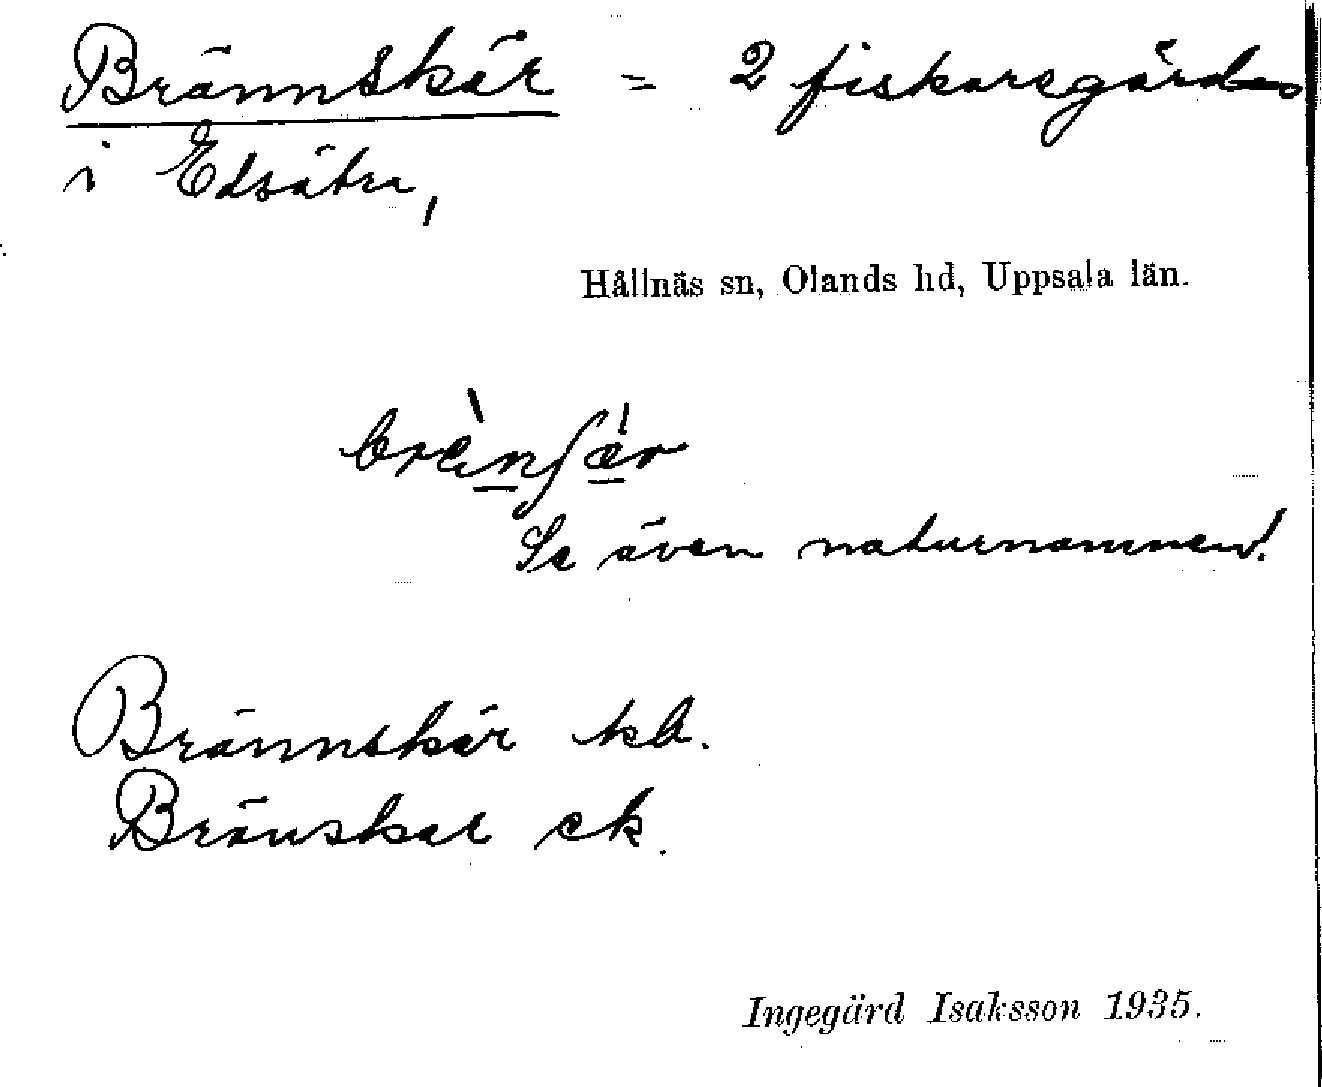 Brännskär = 2 fiskaregårdar
i Edsätra,
Hållnäs sn, Olands hd, Uppsala län.
brä̀nʃä̀r
Se även naturnamnen!
Brännskär kb.
Bränskär ek.
Ingegärd Isaksson 1935.